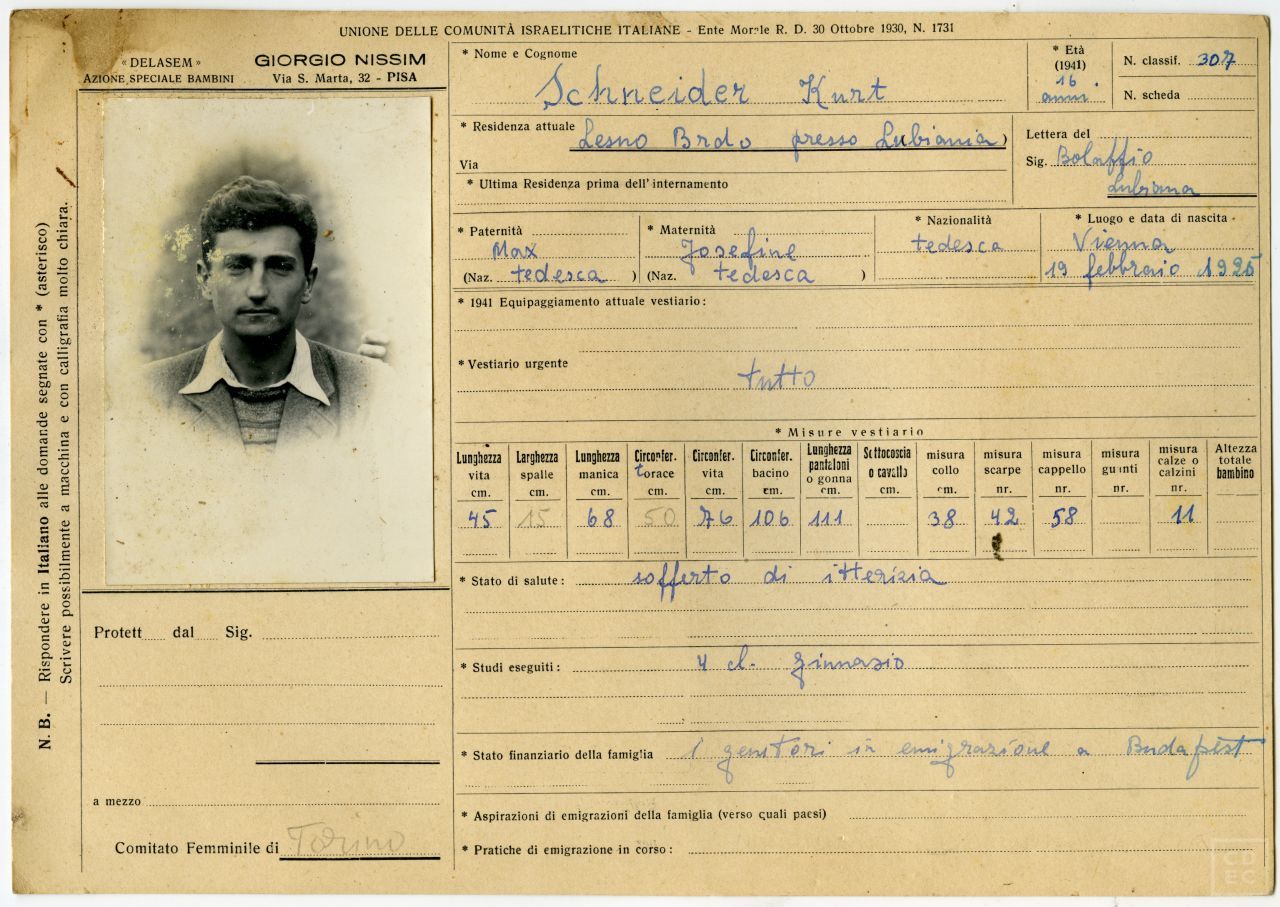 UNIONE DELLE COMUNITÀ ISRAELITICHE ITALIANE - Ente Morale R. D. 30 Ottobre 1930, N. 1731
« DELASEM »
AZIONE SPECIALE BAMBINI
GIORGIO NISSIM
Via S. Marta, 32 - PISA
* Nome e Cognome
Schneider Kurt
* Età
(1941)
16
anni
N. classif. 307
N. scheda
* Residenza attuale Lesno Brdo presso Lubiania)
Via
* Ultima Residenza prima dell'internamento
Lettera del
Sig. Bolaffio
Lubiana
* Paternità
Max
(Naz. tedesca )
* Maternità
Josefine
(Naz. tedesca )
* Nazionalità
tedesca
* Luogo e data di nascita
Vienna
19 febbraio 1925
* 1941 Equipaggiamento attuale vestiario:
* Vestiario urgente
tutto
* Misure vestiario
Lunghezza vita cm. 45
Larghezza spalle cm. 15
Lunghezza manica cm. 68
Circonfer. torace cm. 50
Circonfer. vita cm. 76
Circonfer. bacino cm. 106
Lunghezza pantaloni o gonna cm. 111
Sottocoscia o cavallo cm.
misura collo cm. 38
misura scarpe nr. 42
misura cappello nr. 58
misura guanti nr.
misura calze o calzini nr. 11
Altezza totale bambino
* Stato di salute: sofferto di itterizia
* Studi eseguiti: 4 cl. ginnasio
* Stato finanziario della famiglia I genitori in emigrazione a Budapest
* Aspirazioni di emigrazioni della famiglia (verso quali paesi)
* Pratiche di emigrazione in corso:
Protett dal Sig.
a mezzo
Comitato Femminile di Torino
N. B. — Rispondere in Italiano alle domande segnate con * (asterisco)
Scrivere possibilmente a macchina e con calligrafia molto chiara.
CD
EC